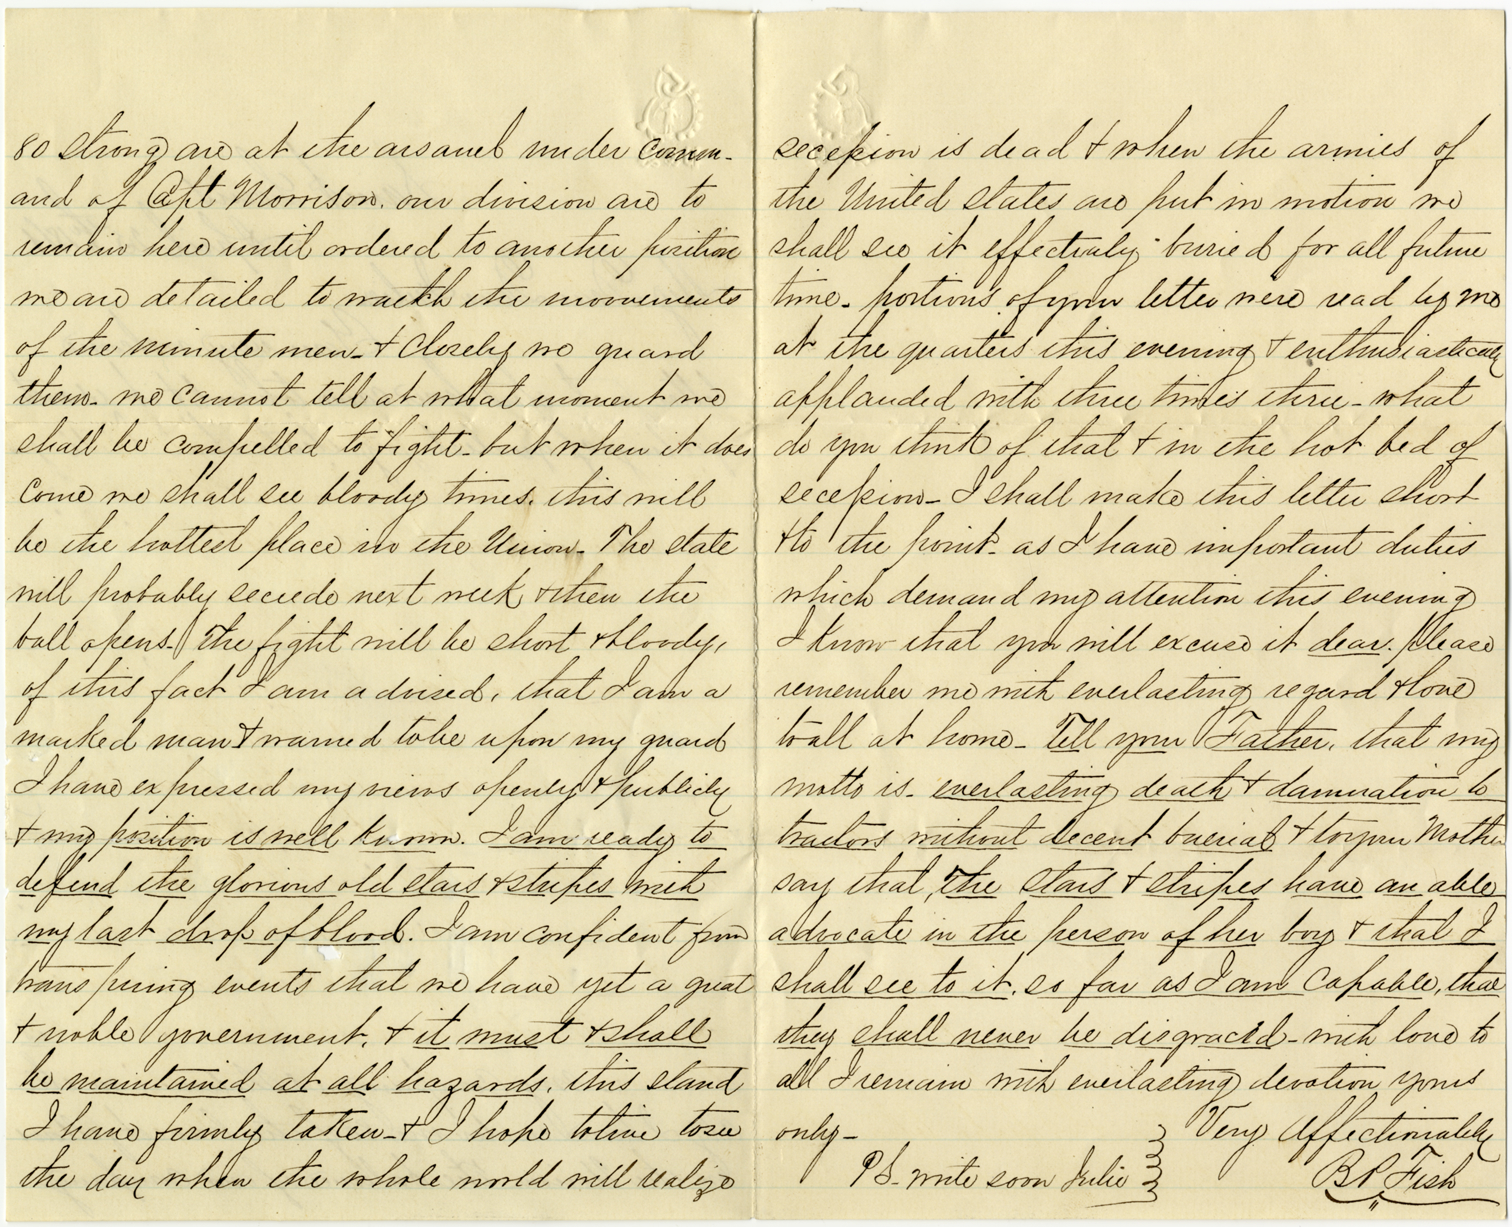 80 strong are at the arsanel under comm-
and of Capt Morrison. our division are to
remain here until ordered to another position
we are detailed to wacth the moovements
of the minute men - & Closely we guard
them - we cannot tell at what moment we
shall be compelled to fight - but when it does
come we shall see bloody times. this will
be the hottest place in the Union - The state
will probably seceede next week & then the
ball opens - The fight will be short & bloody,
of this fact I am advised, that I am a
marked man & warned to be upon my guard
I have expressed my views openly & publicly
& my position is well known. I am ready to
defend the glorious old stars & stripes with
my last drop of blood. I am confident from
transpiring events that we have yet a great
& noble government. & it must & shall
be maintained at all hazards. this stand
I have firmly taken - & I hope to live to see
the day when the whole world will realize
secession is dead & when the armies of
the United States are put in motion we
shall see it effectualy buried for all future
time - portions of your letter were read by me
at the quarters this evening & enthusiasticaly
applauded with three times three - what
do you think of that & in the hot bed of
secession - I shall make this letter short
& to the point - as I have important duties
which demand my attention this evening
I know that you will excuse it dear. please
remember me with everlasting regard & love
to all at home - Tell your Father, that my
motto is - everlasting death & damnation to
traitors without decent buerial & to your Mother
say that, the stars & stripes have an able
advocate in the person of her boy & that I
shall see to it, so far as I am capable, that
they shall never be disgraced - with love to
all I remain with everlasting devotion yours
only -
Very Affectionately
PS - write soon Julie
B P Fish